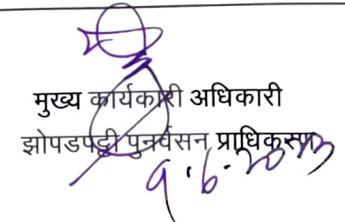 मुख्य कार्यकारी अधिकारी
झोपडपट्टी पुनर्वसन प्राधिकरण
9.6.2023